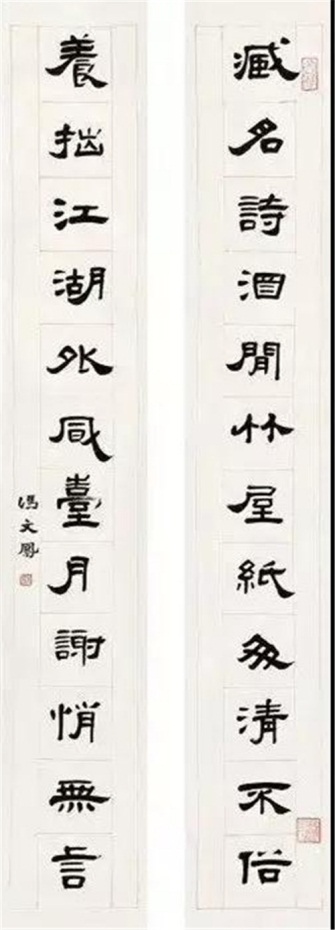 臧名詩酒閒竹屋紙窗清不俗
養拙江湖外風臺月謝悄無言
馮文鳳